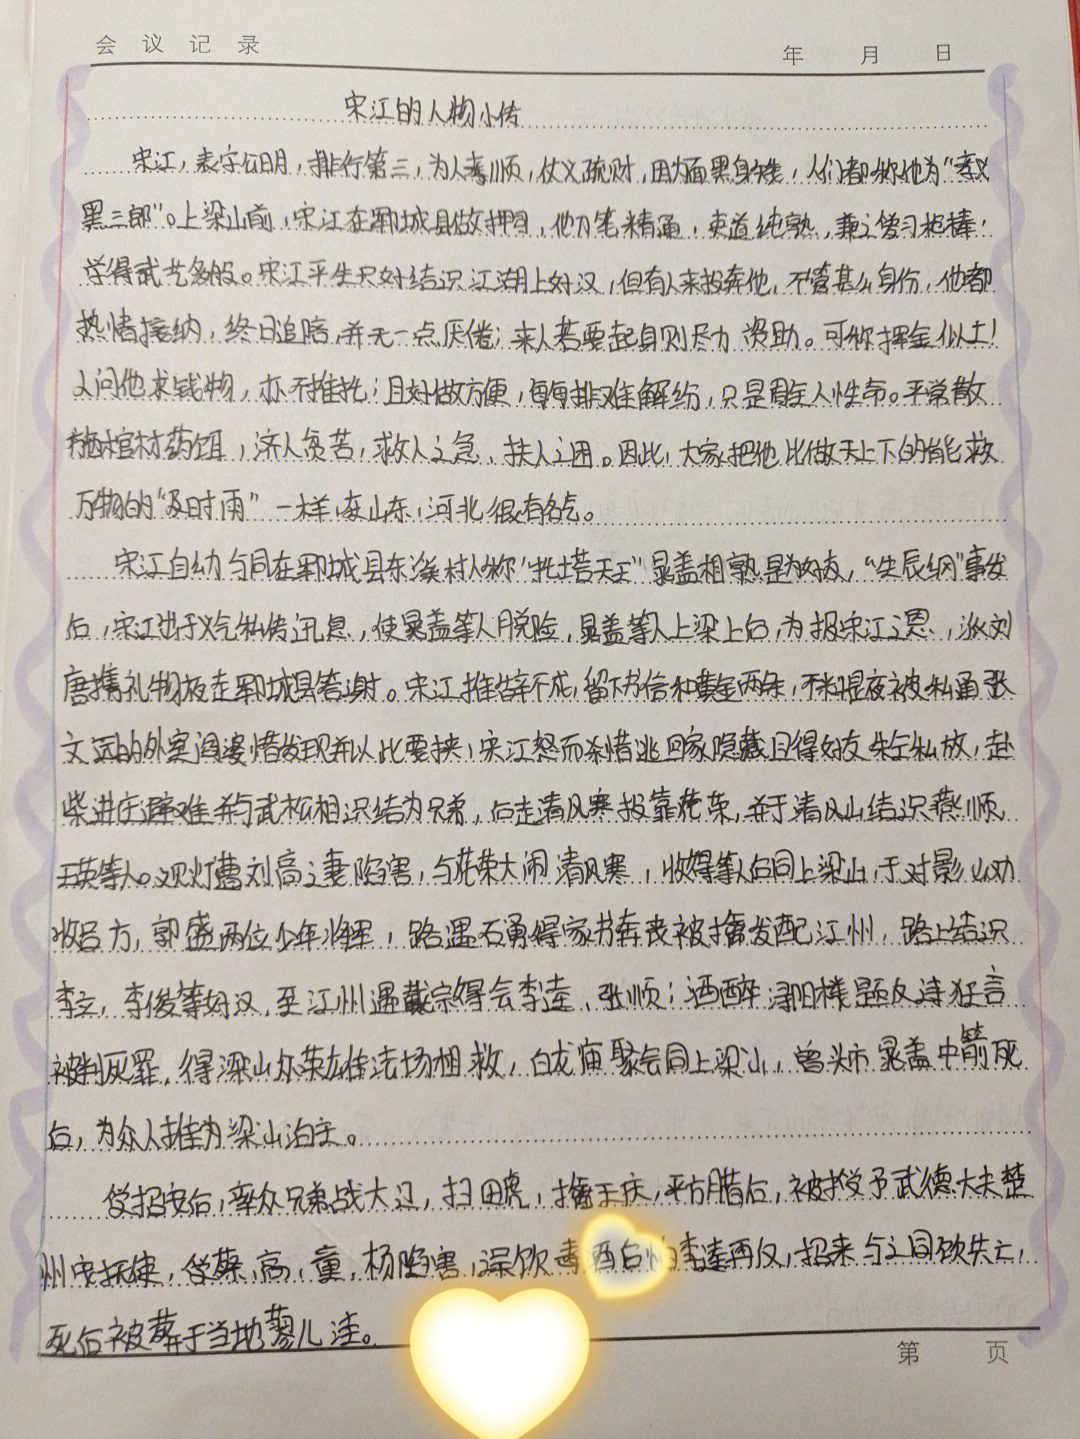 会议记录
年 月 日
宋江的人物小传
宋江，表字公明，排行第三，为人孝顺，仗义疏财，因为面黑身矮，人们都称他为“孝义
黑三郎”。上梁山前，宋江在郓城县做押司，他刀笔精通，吏道纯熟，兼之爱习枪棒，
学得武艺多般。宋江平生只好结识江湖上好汉，但有人来投奔他，不管甚么身份，他都
热情接纳，终日追陪，并无一点厌倦；来人若要起身则尽力资助。可称挥金似土！
人问他求钱物，亦不推托；且好做方便，每每排难解纷，只是周全人性命。平常散
施棺材药饵，济人贫苦，救人之急，扶人之困。因此，大家把他比做天上下的能救
万物的“及时雨”一样，在山东，河北很有名气。
宋江自幼与同在郓城县东溪村人称“托塔天王”晁盖相熟是为好友，“生辰纲”事发
后，宋江出于义气私传讯息，使晁盖等人脱险，晁盖等人上梁上后，为报宋江之恩，派刘
唐携礼物返走郓城县答谢。宋江推辞不成，留下书信和黄金两条，不料提夜被私通张
文远的外室阎婆惜发现并以此要挟，宋江怒而杀惜逃回家隐藏且得好友朱仝私放，赴
柴进庄避难并与武松相识结为兄弟，后走清风寒投靠花荣，并于清风山结识燕顺，
王英等人。观灯遭刘高之妻陷害，与花荣大闹清风寒，收得等人后同上梁山，于对影山劝
收吕方，郭盛两位少年将军，路遇石勇得家书奔丧被擒发配江州，路上结识
李立，李俊等好汉，至江州遇戴宗得会李逵、张顺；酒醉浔阳楼题反诗狂言
被判死罪，得梁山众英雄法场相救，白龙庙聚会同上梁山，曾头市晁盖中箭死
后，为众人推为梁山泊主。
受招安后，率众兄弟战大辽，扫田虎，擒王庆，平方腊后，被授予武德大夫楚
州安抚使，受蔡，高，童，杨陷害，误饮毒酒后怕李逵再反，招来与之同饮失亡，
死后被葬于当地蓼儿洼。
第 页